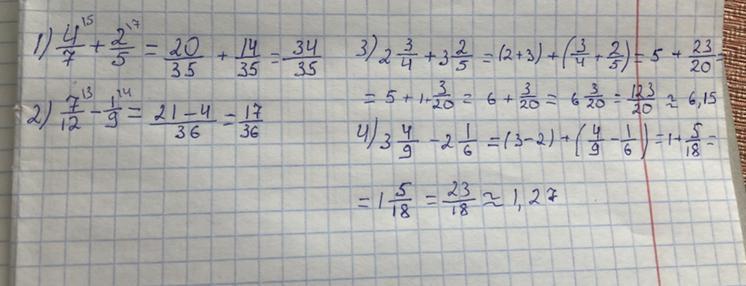 1) 4/7 \15 + 2/5 \17 = 20/35 + 14/35 = 34/35
2) 7/12 \13 - 1/9 \14 = (21-4)/36 = 17/36
3) 2 3/4 + 3 2/5 = (2+3) + (3/4 + 2/5) = 5 + 23/20 =
= 5 + 1 + 3/20 = 6 + 3/20 = 6 3/20 = 123/20 ≈ 6,15
4) 3 4/9 - 2 1/6 = (3-2) + (4/9 - 1/6) = 1 + 5/18 =
= 1 5/18 = 23/18 ≈ 1,27